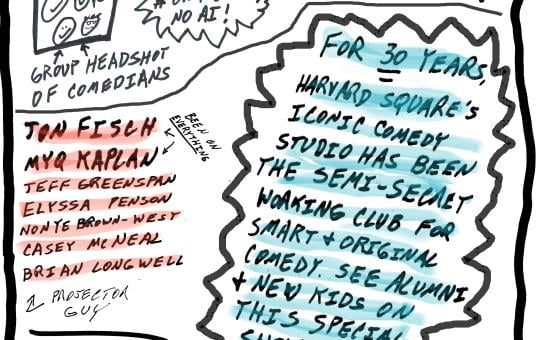 NO AI!
GROUP HEADSHOT
OF COMEDIANS
JON FISCH
MYQ KAPLAN
BEEN ON
EVERYTHING
JEFF GREENSPAN
ELYSSA PENSON
NONYE BROWN-WEST
CASEY MCNEAL
BRIAN LONGWELL
PROJECTOR
GUY
FOR 30 YEARS,
HARVARD SQUARE'S
ICONIC COMEDY
STUDIO HAS BEEN
THE SEMI-SECRET
WORKING CLUB FOR
SMART + ORIGINAL
COMEDY. SEE ALUMNI
+ NEW KIDS ON
THIS SPECIAL